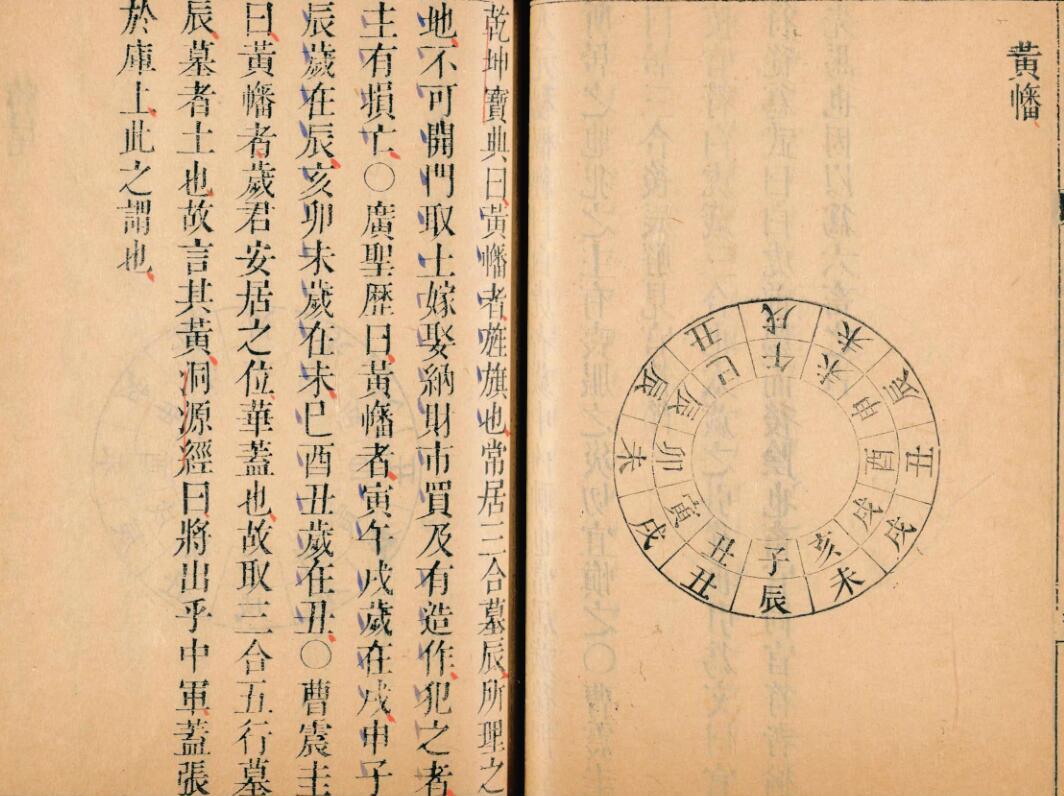 黃幡
辰丑戌未辰丑戌未辰丑戌未
子丑寅卯辰巳午未申酉戌亥
乾坤寶典曰黃幡者旌旗也常居三合墓辰所理之
地不可開門取土嫁娶納財市買及有造作犯之者
主有損亡〇廣聖歷曰黃幡者寅午戌歲在戌申子
辰歲在辰亥卯未歲在未巳酉丑歲在丑〇曹震圭
曰黃幡者歲君安居之位華蓋也故取三合五行墓
辰墓者土也故言其黃洞源經曰將出乎中軍蓋張
於庫上此之謂也